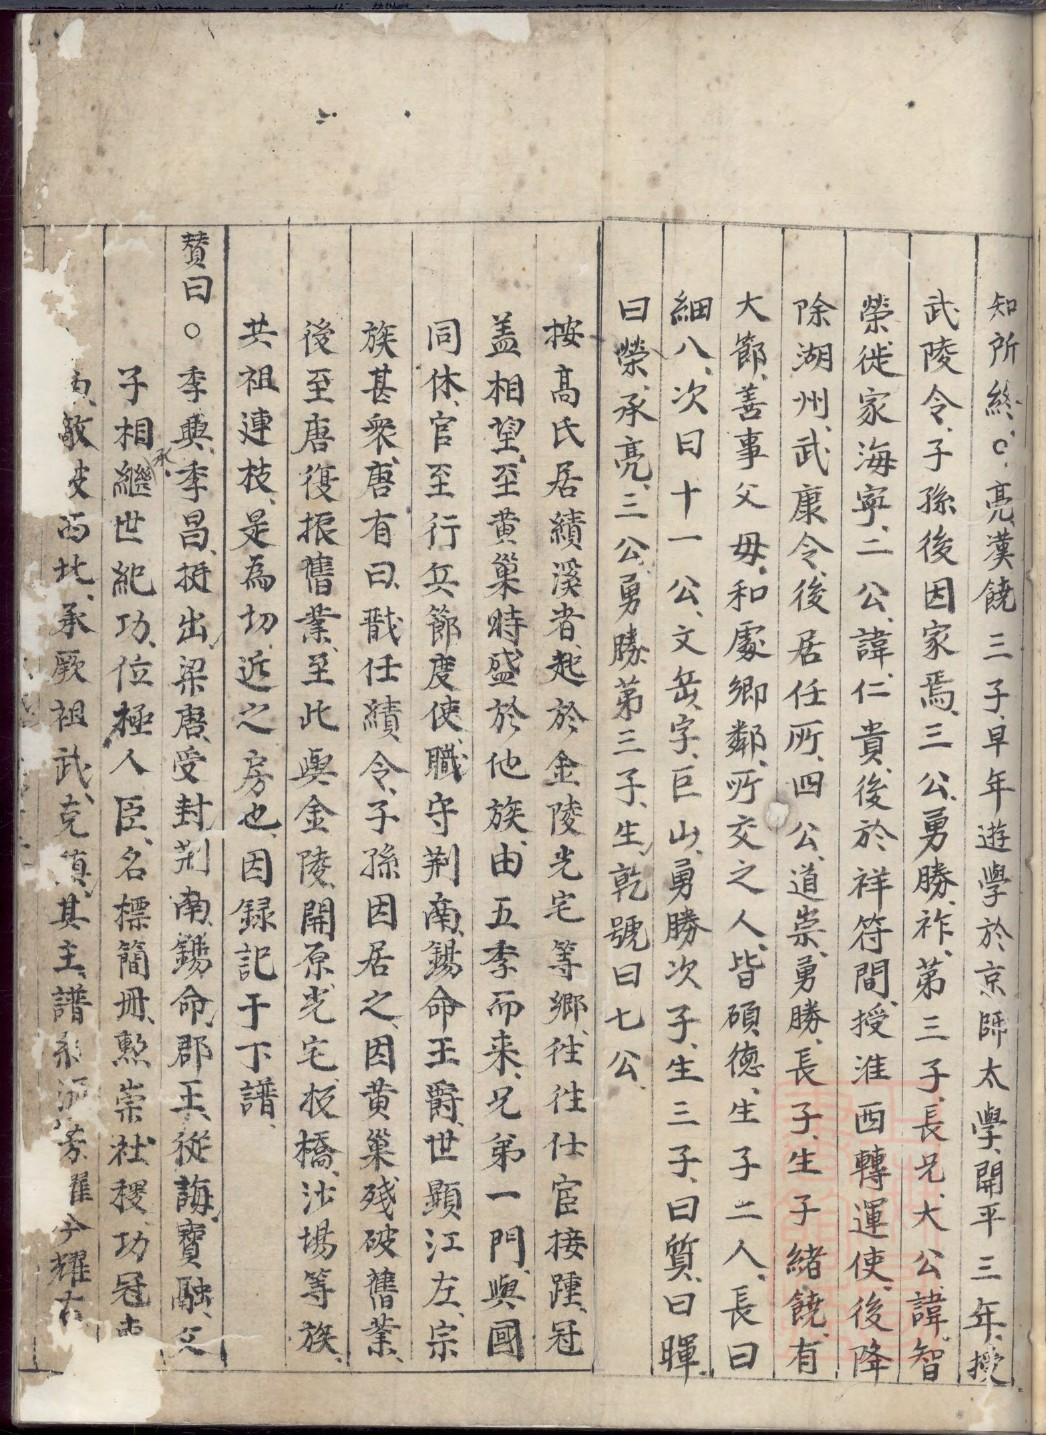 知所終○亮漢饒三子早年遊學於京師太學開平三年授
武陵令子孫後因家焉三公勇勝祚第三子長兄大公諱智
榮徙家海寧二公諱仁貴後於祥符間授淮西轉運使後降
除湖州武康令後居任所四公道崇勇勝長子生子緒饒有
大節善事父毋和處鄉鄰所交之人皆碩德生子二人長曰
細八次曰十一公文岳字巨山勇勝次子生三子曰質曰暉
曰榮承亮三公勇勝第三子生乾號曰七公
按高氏居績溪者起於金陵光宅等鄉往往仕宦接踵冠
盖相望至黄巢時盛於他族由五季而来兄弟一門與國
同休官至行兵節度使職守荆南錫命王爵世顯江左宗
族甚衆唐有曰戬任績令子孫因居之因黄巢殘破舊業
後至唐復振舊業至此與金陵開原光宅板橋沙場等族
共祖連枝是為切近之房也因録記于下譜
賛曰○季興季昌挺出梁唐受封荆南錫命郡王從誨寳融父
子相繼承世紀功位極人臣名標簡冊勲崇社稷功冠
敵破西北承厥祖武克其主譜芳耀今耀古